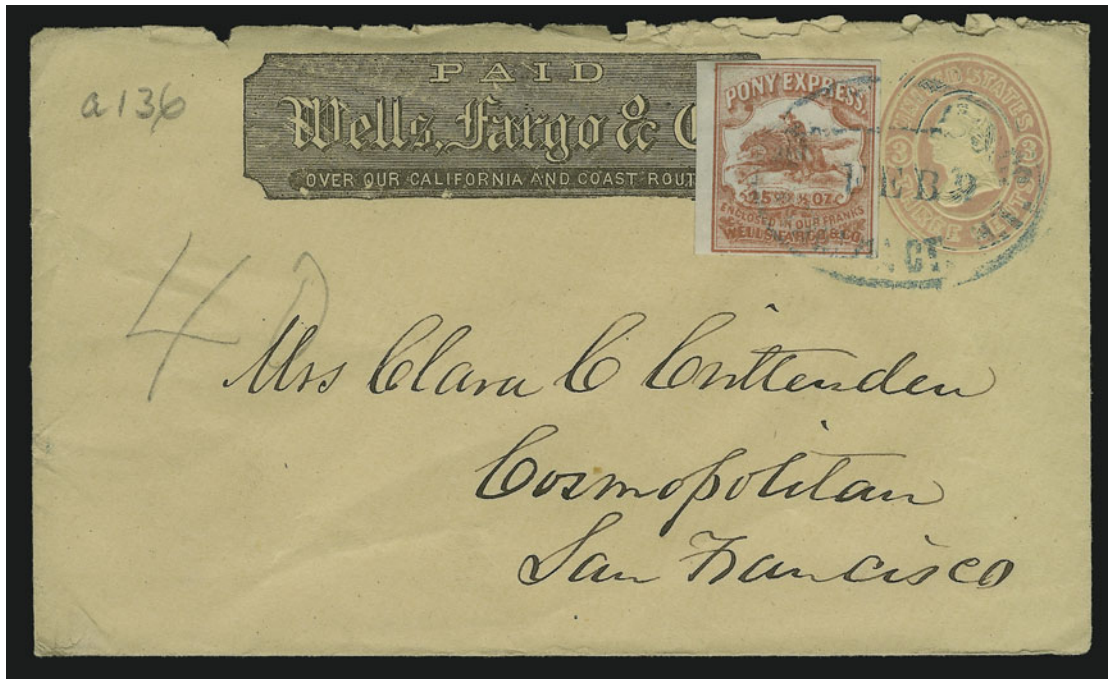 a136
PAID
Wells, Fargo & C
OVER OUR CALIFORNIA AND COAST ROUT
PONY EXPRESS
25 Cts ½ OZ.
ENCLOSED IN OUR FRANKS
WELLS, FARGO & CO.
UNITED STATES
3 3
FEB 9
40
Mrs Clara C Crittenden
Cosmopolitan
San Francisco